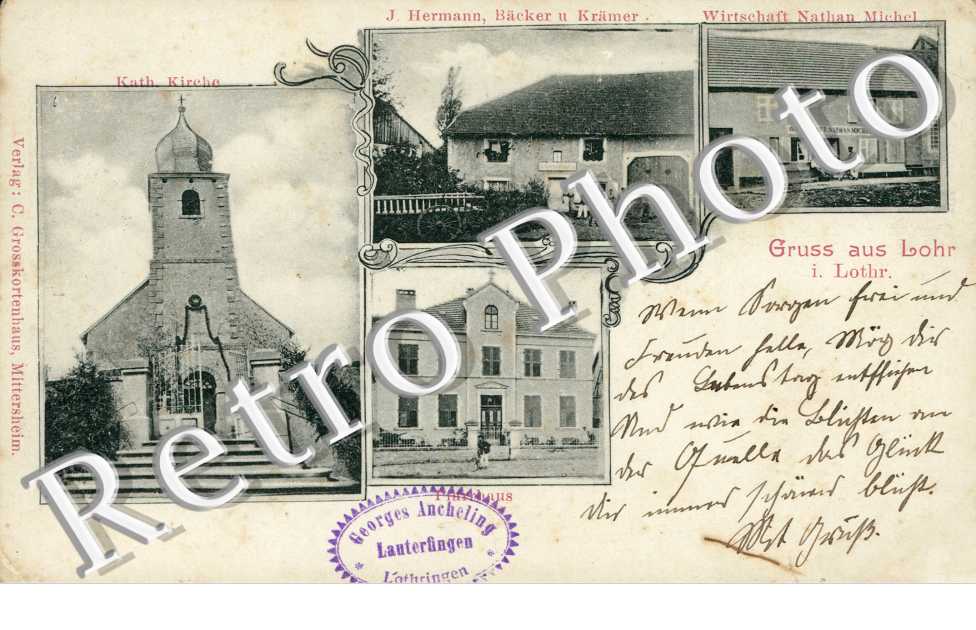 J. Hermann, Bäcker u Krämer.
Wirtschaft Nathan Michel
Kath. Kirche
Verlag: C. Grosskortenhaus, Mittersheim.
NATHAN MICHEL
Gruss aus Lohr
i. Lothr.
Wenn Sorgen frei und
Freuden helle, Mög dir
des Lebenstag entfliehen
Und wie die Blüthen an
der Quelle das Glück
dir immer schöner blüht.
Mit Gruß.
Pfarrhaus
Georges Ancheling
Lauterfingen
Lothringen
Retro Photo